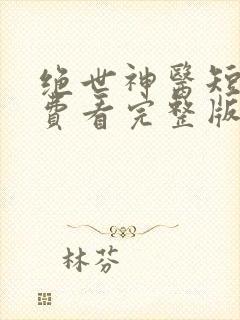 绝世神醫短
費看完整版
林芬